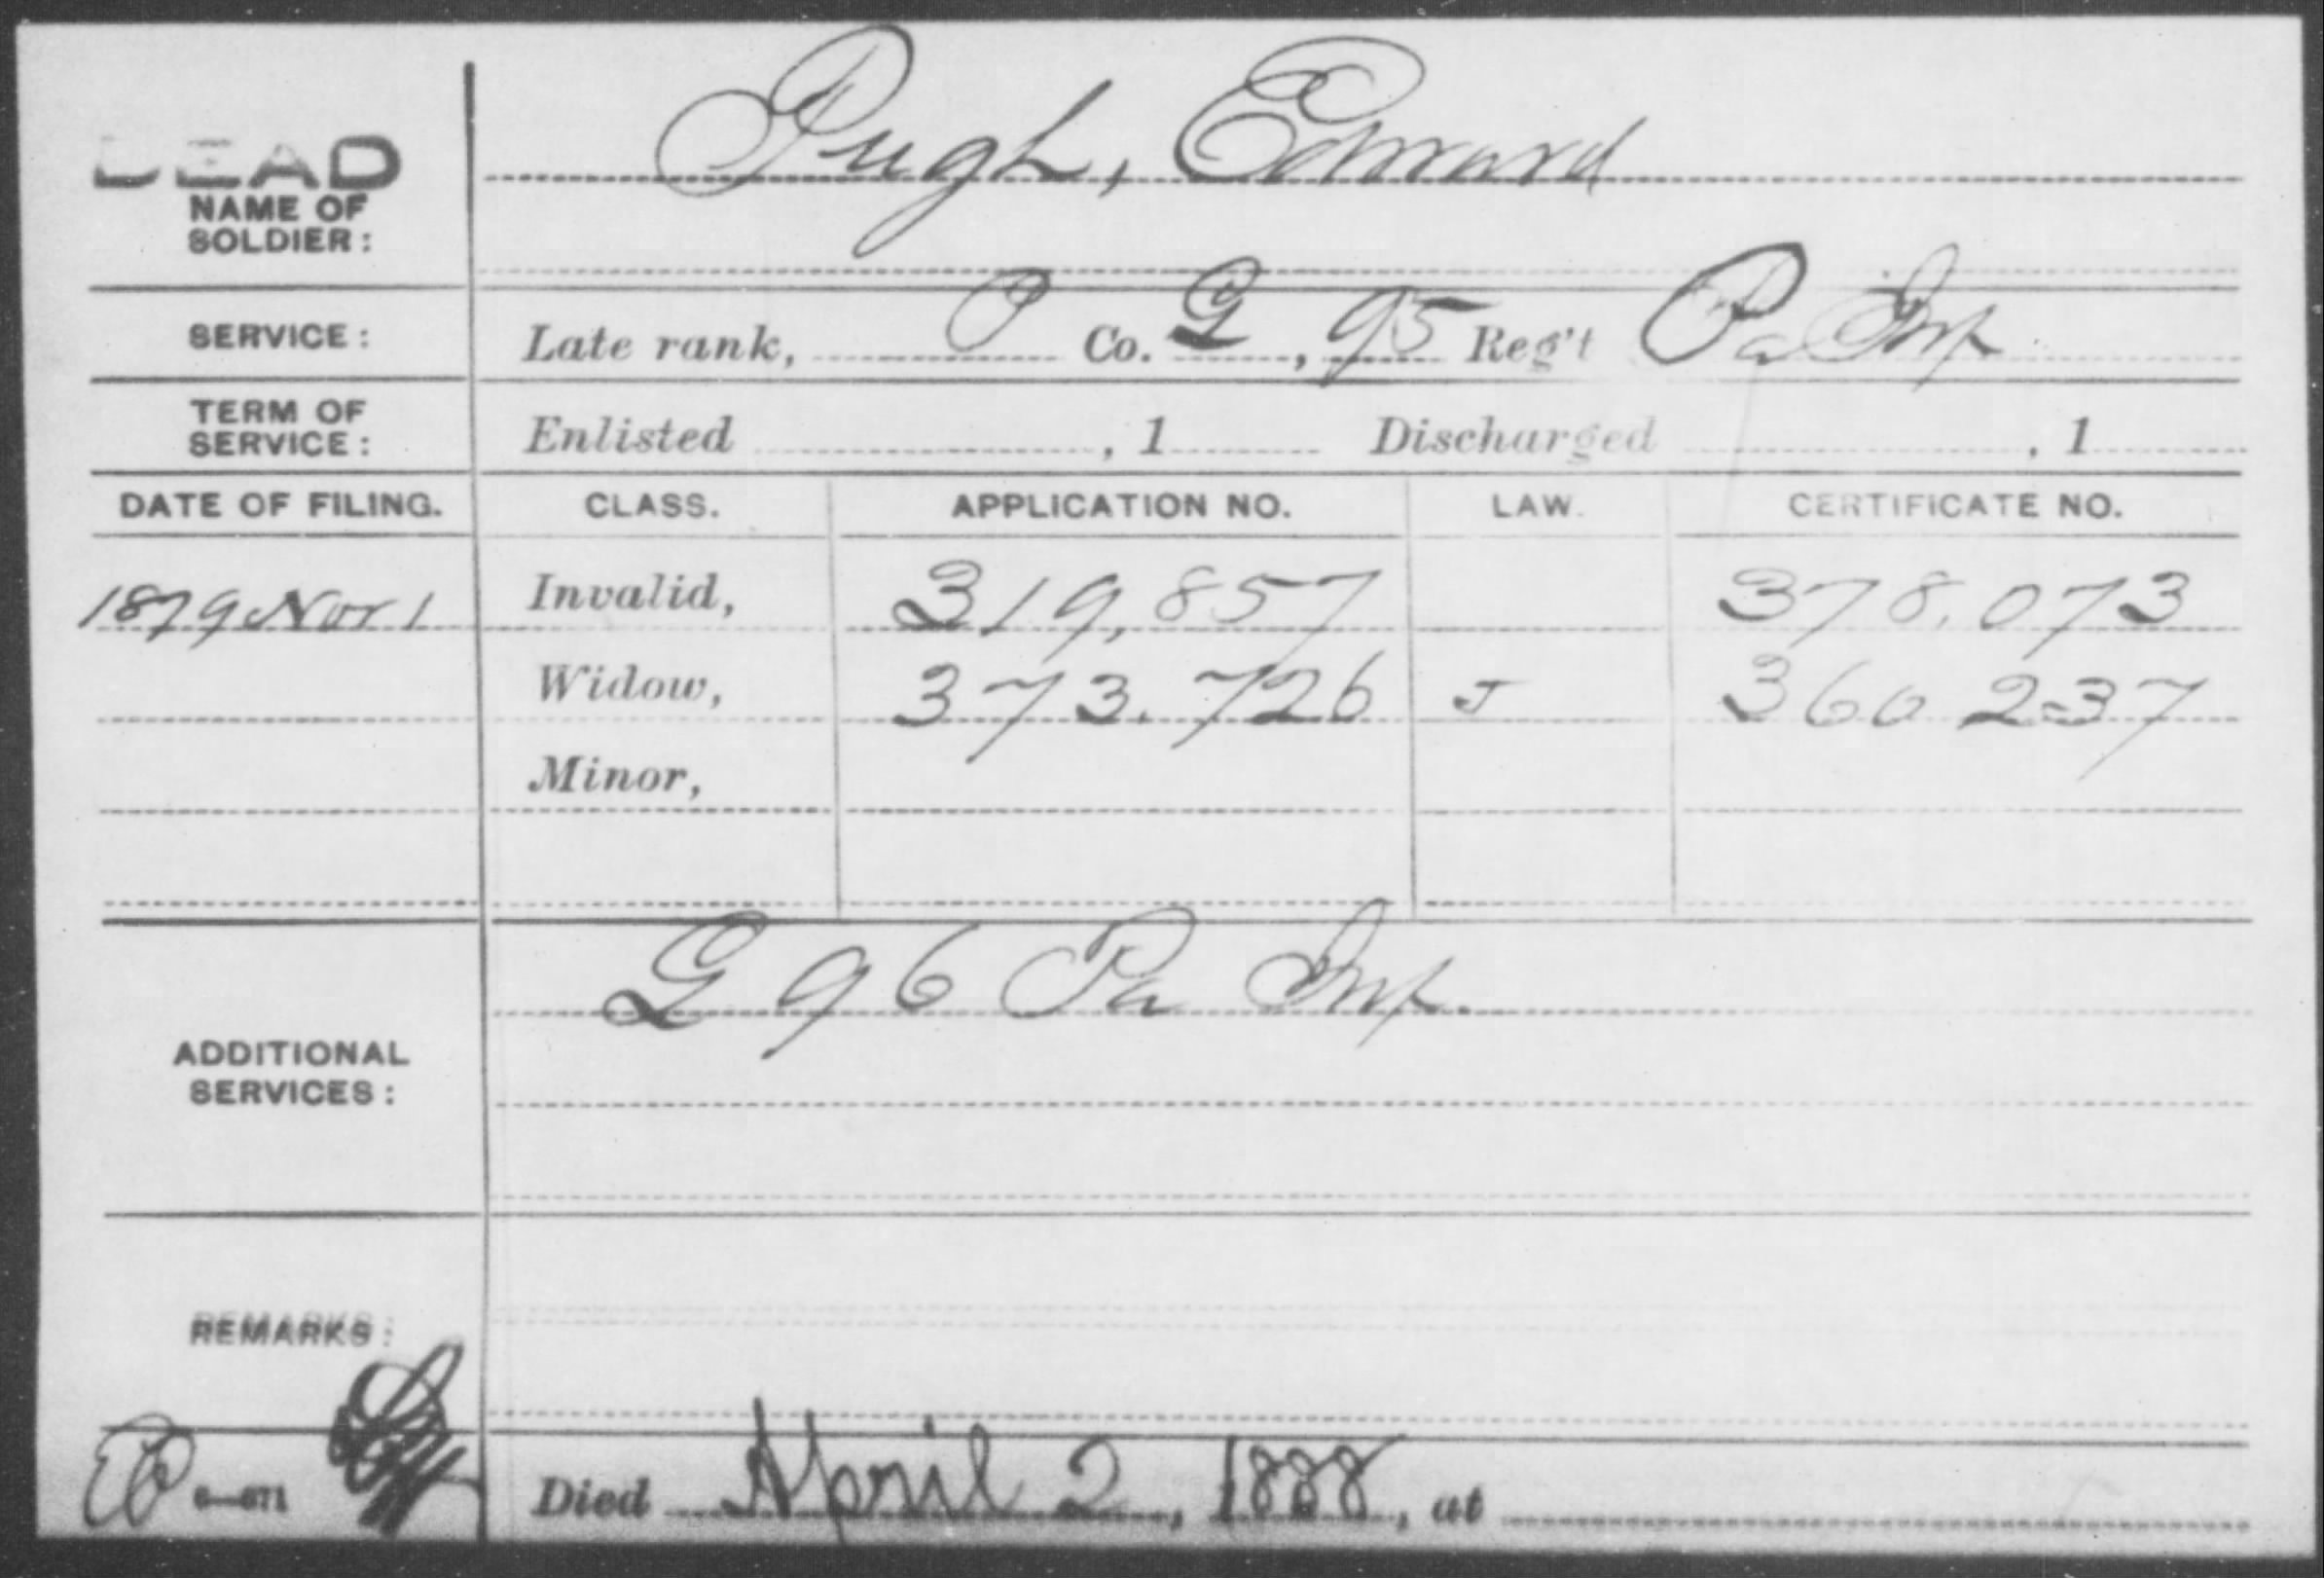 DEAD
Pugh, Edward
NAME OF
SOLDIER:
SERVICE: Late rank, P Co. G, 95 Reg't Pa Inf
TERM OF
SERVICE: Enlisted , 1 Discharged , 1
DATE OF FILING. CLASS. APPLICATION NO. LAW. CERTIFICATE NO.
1879 Nov 1 Invalid, 319,857 378,073
Widow, 373.726 J 360 237
Minor,
G 96 Pa Inf.
ADDITIONAL
SERVICES:
REMARKS:
6—671 Died April 2, 1888, at